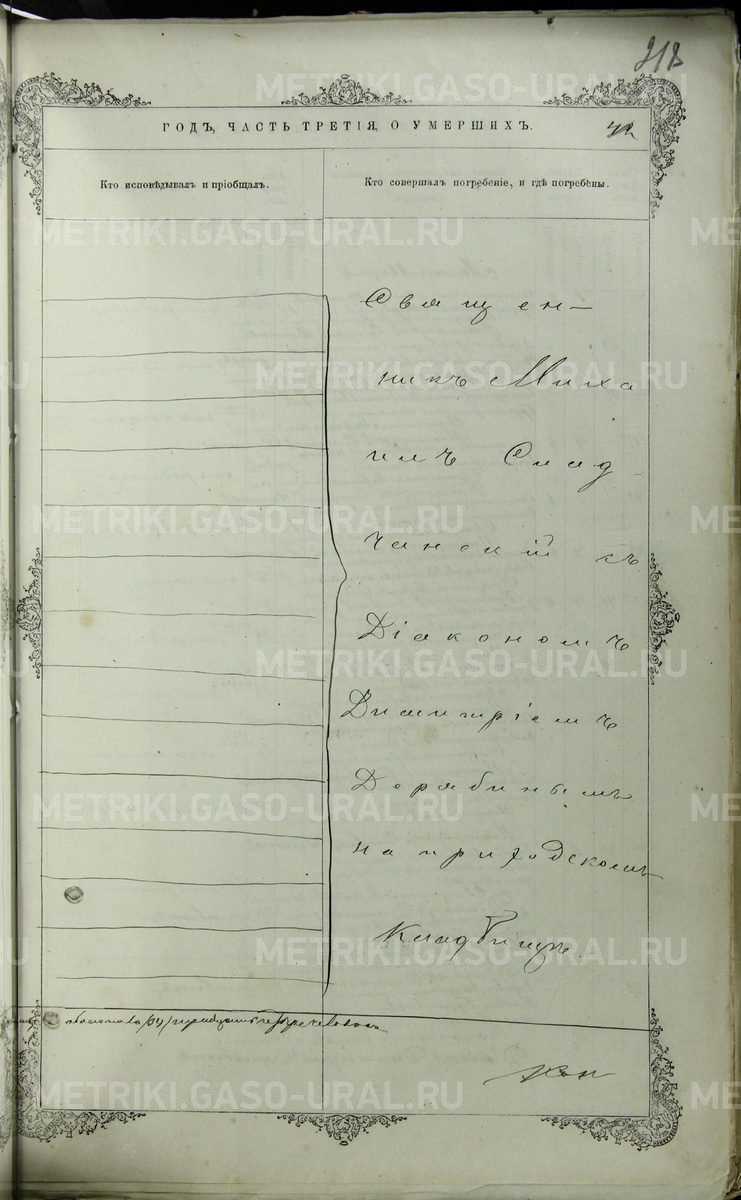 218
ГОДЪ, ЧАСТЬ ТРЕТІЯ, О УМЕРШИХЪ.
42
Кто исповѣдывалъ и пріобщалъ.
Кто совершалъ погребеніе, и гдѣ погребены.
Священ-
никъ Миха
илъ Слад
чанскій съ
Діакономъ
Димитріемъ
Дерябинымъ
на приходскомъ
Кладбищѣ.
METRIKI.GASO-URAL.RU